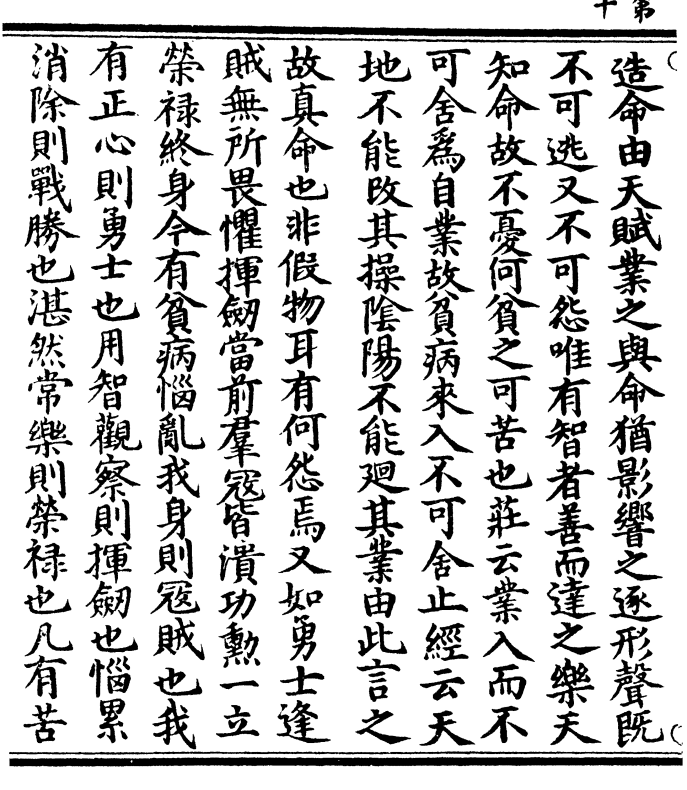 第十
造命由天賦業之與命猶影響之逐形聲既
不可逃又不可怨唯有智者善而達之樂天
知命故不憂何貧之可苦也莊云業入而不
可舍爲自業故貧病來入不可舍止經云天
地不能改其操陰陽不能迴其業由此言之
故真命也非假物耳有何怨焉又如勇士逢
賊無所畏懼揮劒當前羣寇皆潰功勲一立
榮禄終身今有貧病惱亂我身則寇賊也我
有正心則勇士也用智觀察則揮劒也惱累
消除則戰勝也湛然常樂則榮禄也凡有苦